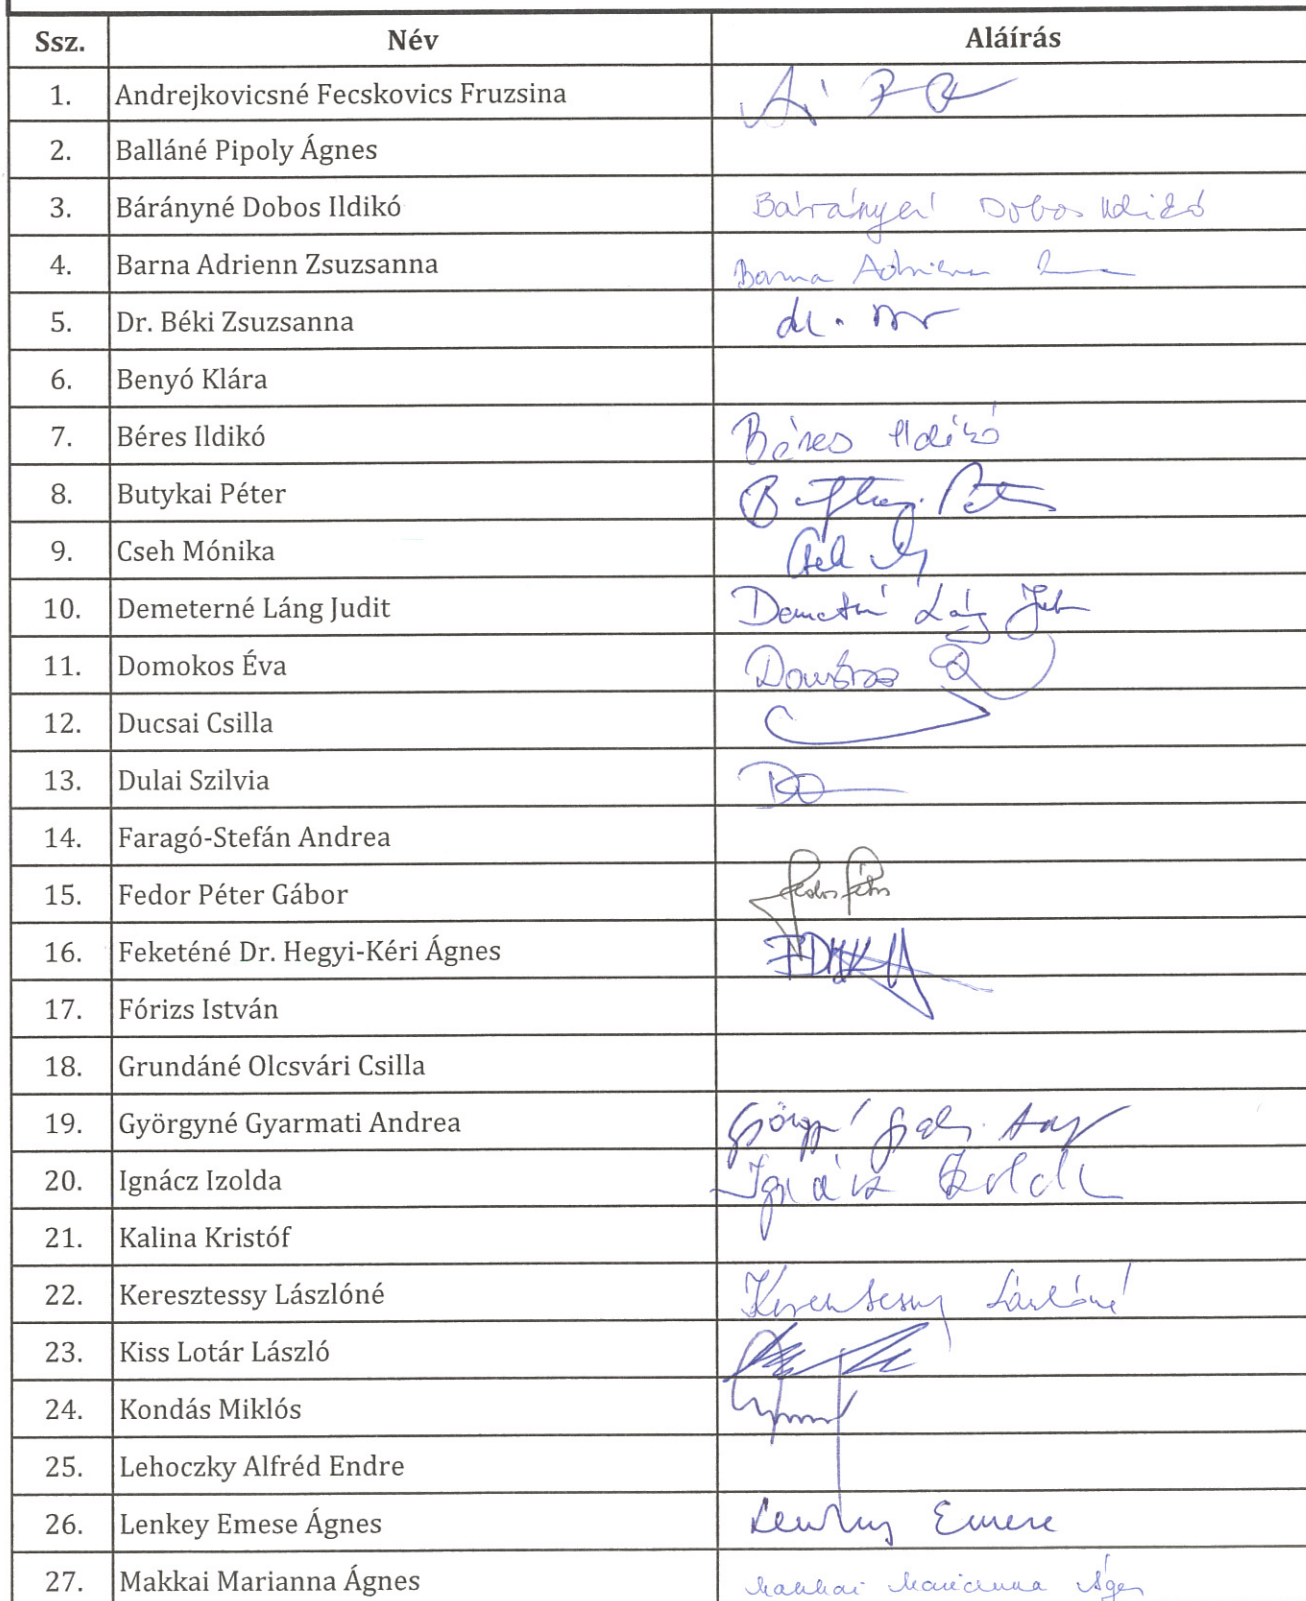 Ssz. Név Aláírás
1. Andrejkovicsné Fecskovics Fruzsina
2. Balláné Pipoly Ágnes
3. Bárányné Dobos Ildikó Bárányné Dobos Ildikó
4. Barna Adrienn Zsuzsanna Barna Adrienn
5. Dr. Béki Zsuzsanna dr.
6. Benyó Klára
7. Béres Ildikó Béres Ildikó
8. Butykai Péter
9. Cseh Mónika Cseh
10. Demeterné Láng Judit Demeterné Láng
11. Domokos Éva Domokos
12. Ducsai Csilla
13. Dulai Szilvia
14. Faragó-Stefán Andrea
15. Fedor Péter Gábor Fedor Péter
16. Feketéné Dr. Hegyi-Kéri Ágnes
17. Fórizs István
18. Grundáné Olcsvári Csilla
19. Györgyné Gyarmati Andrea
20. Ignácz Izolda Ignácz Izolda
21. Kalina Kristóf
22. Keresztessy Lászlóné Keresztessy Lászlóné
23. Kiss Lotár László
24. Kondás Miklós
25. Lehoczky Alfréd Endre
26. Lenkey Emese Ágnes Lenkey Emese
27. Makkai Marianna Ágnes Makkai Marianna Ágnes